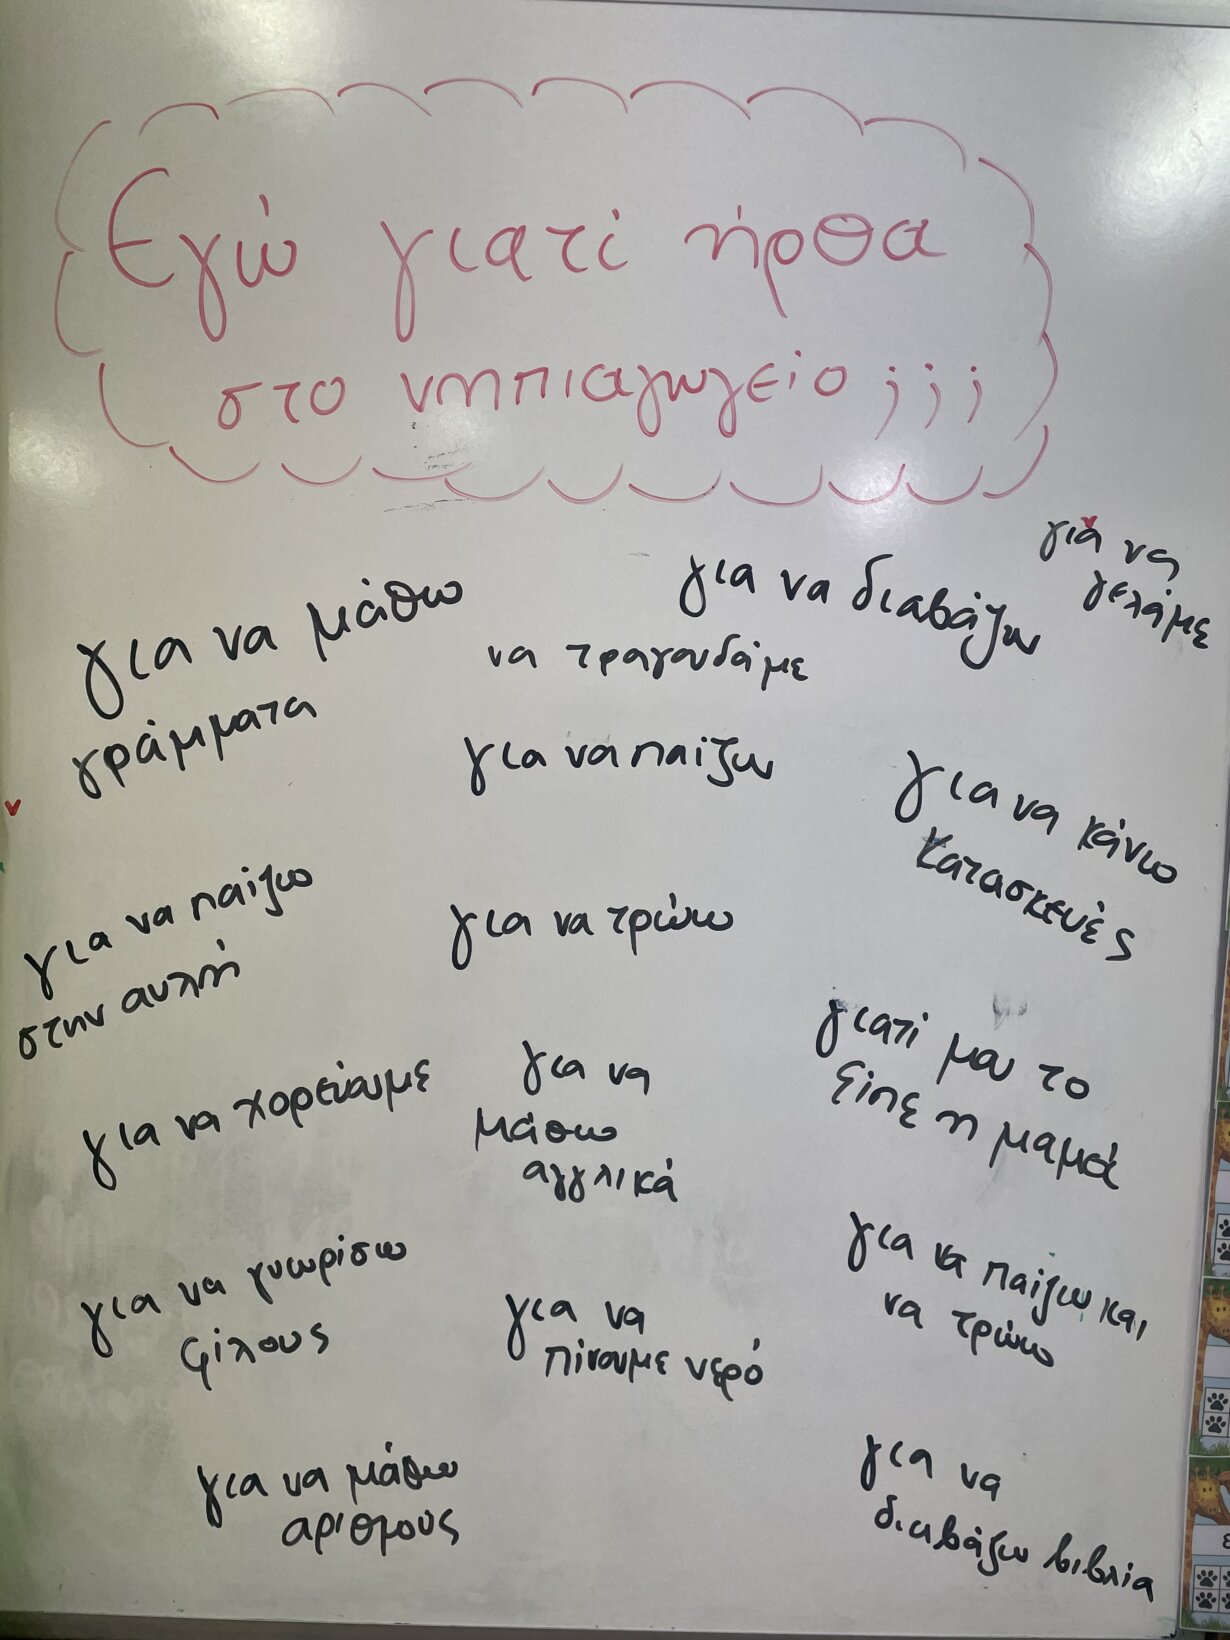 Εγώ γιατί ήρθα
στο νηπιαγωγείο ; ; ;
για να μάθω
γράμματα
να τραγουδάμε
για να διαβάζω
για να
γελάμε
για να παίζω
για να κάνω
κατασκευές
για να παίζω
στην αυλή
για να τρώω
γιατί μου το
είπε η μαμά
για να χορεύουμε
για να
μάθω
αγγλικά
για να γνωρίσω
φίλους
για να
πίνουμε νερό
για να παίζω και
να τρώω
για να μάθω
αριθμούς
για να
διαβάζω βιβλία